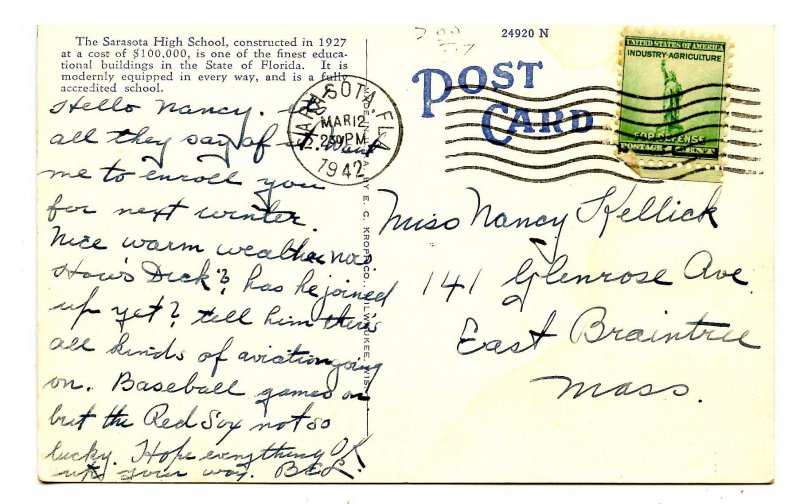 The Sarasota High School, constructed in 1927
at a cost of $100,000, is one of the finest educa-
tional buildings in the State of Florida. It is
modernly equipped in every way, and is a fully
accredited school.
Hello Nancy.
all they say of it. Want
me to enroll you
for next winter.
Nice warm weather now
How's Dick? has he joined
up yet? tell him there's
all kinds of aviation going
on. Baseball games on
but the Red Sox not so
lucky. Hope everything OK
up your way.
MADE IN BY E. C. KROPP CO., MILWAUKEE, WIS.
24920 N
POST
CARD
SARASOTA, FLA
MAR 12
PM
1942
UNITED STATES OF AMERICA
INDUSTRY-AGRICULTURE
FOR DEFENSE
POSTAGE 1 CENTS
Miss Nancy Kellick
141 Glenrose Ave.
East Braintree
Mass.